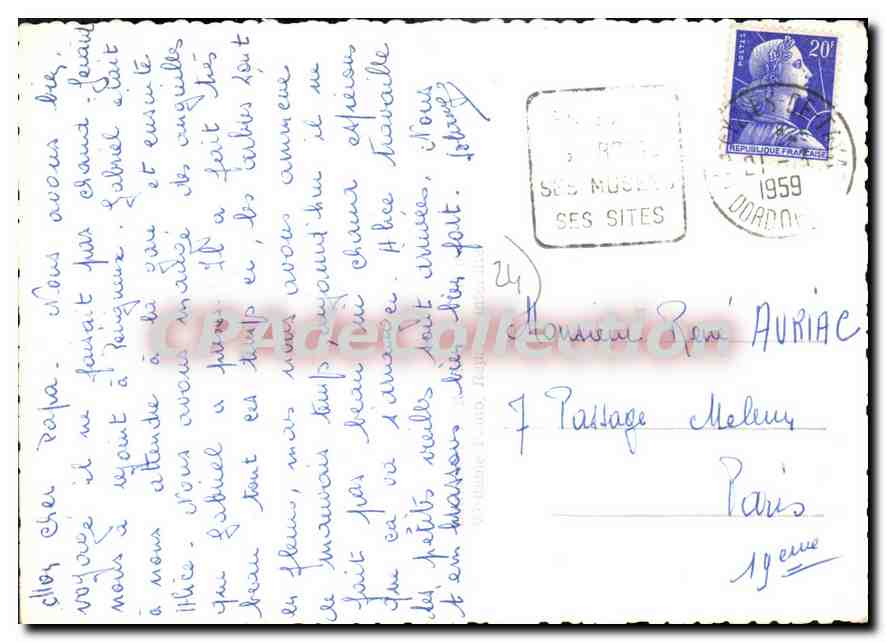 Mon cher Papa. Nous avons bien
voyagé il ne faisait pas chaud. Gérard
nous a rejoint à Périgueux. Gabriel était
à nous attendre à la gare et ensuite
Alice. Nous avons mangé des anguilles
que Gabriel a prises. Il a fait très
beau tout ces temps ci, les herbes sont
en fleurs, mais nous avons ammené
le mauvais temps, aujourd'hui il ne
fait pas beau. Enfin chaud espérons
que ça va s'arranger. Alice travaille
les petites vieilles sont arrivées. Nous
t'embrassons bien bien fort.
POSTES
20F
REPUBLIQUE FRANÇAISE
SES MUSEES
SES SITES
21
1959
DORDOGNE
24
Monsieur René AURIAC
7 Passage Melun
Paris
19eme
CPAdeCollection.com